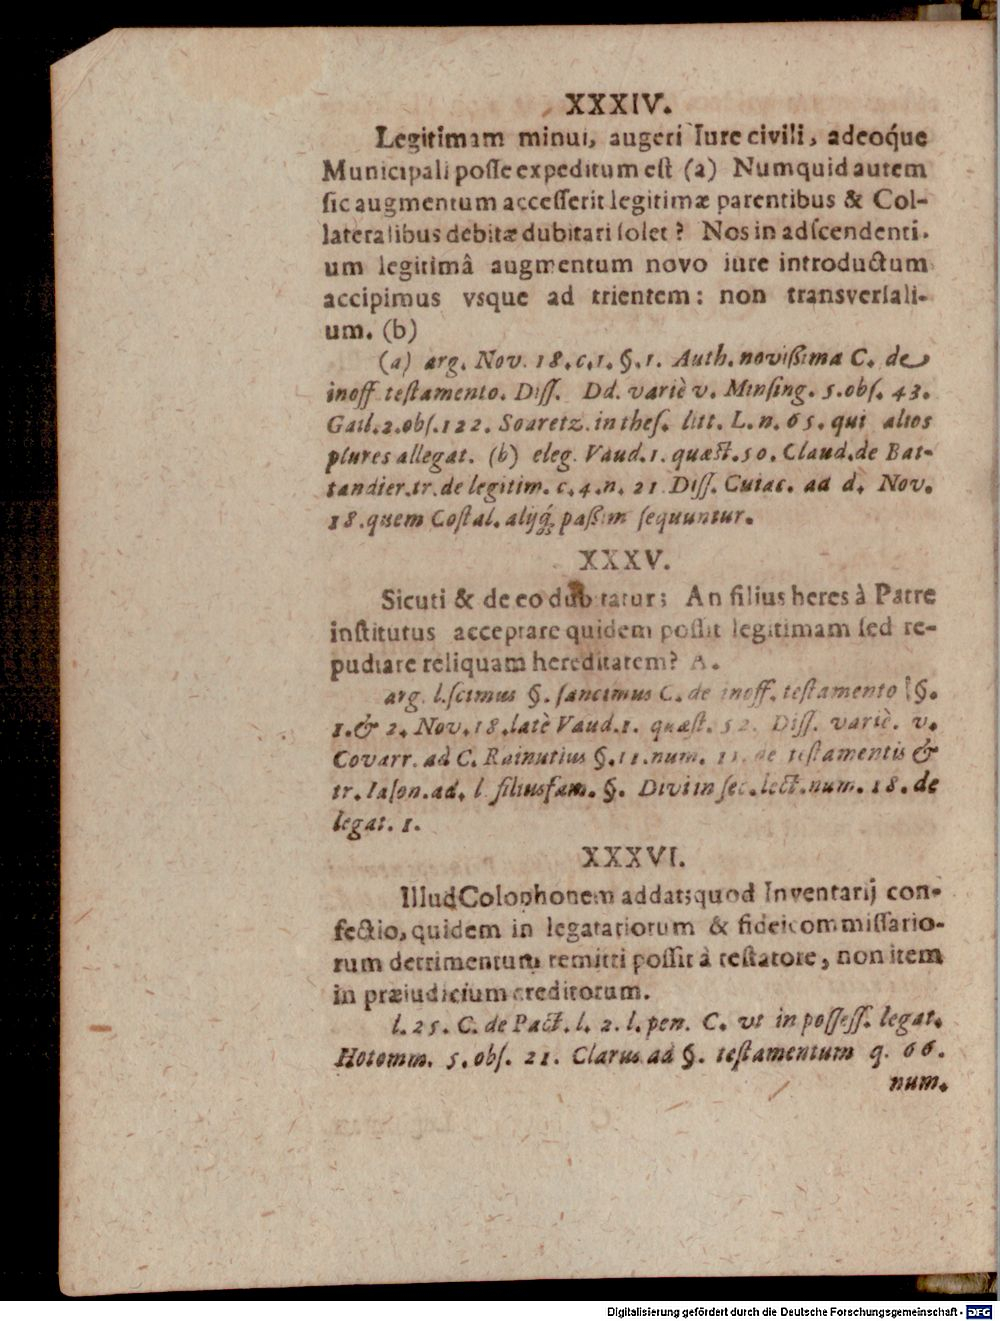 XXXIV.
Legitimam minui, augeri Iure civili, adeoq́ue
Municipali posse expeditum est (a) Numquid autem
sic augmentum accesserit legitimæ parentibus & Col-
lateralibus debitæ dubitari solet? Nos in adscendenti-
um legitimâ augmentum novo iure introductum
accipimus vsque ad trientem: non transversali-
um. (b)
(a) arg. Nov. 18. c. 1. §. 1. Auth. novißima C. de
inoff testamento. Diss. Dd. variè v. Minsing. 5. obs. 43.
Gail. 2. obs. 122. Soaretz. in thes. litt. L. n. 65. qui alios
plures allegat. (b) eleg. Vaud. 1. quæst. 50. Claud. de Bat-
tandier. tr. de legitim. c. 4. n. 21 Diss. Cuiac. ad d. Nov.
18. quem Costal. alijq́; paßim sequuntur.
XXXV.
Sicuti & de eo dubitatur; An filius heres à Patre
institutus acceptare quidem possit legitimam sed re-
pudiare reliquam hereditatem? A.
arg. l. scimus §. sancimus C. de inoff. testamento §.
1. & 2. Nov. 18. latè Vaud. 1. quæst. 52. Diss. variè. v.
Covarr. ad C. Rainutius §. 11. num. 11. de testamentis &
tr. Iason. ad. l filiusfam. §. Divi in sec. lect. num. 18. de
legat. 1.
XXXVI.
Illud Colophonem addat; quod Inventarij con-
fectio, quidem in legatariorum & fideicommissario-
rum detrimentum remitti possit à testatore, non item
in præiudicium creditorum.
l. 25. C. de Pact. l. 2. l. pen. C. vt in possess. legat.
Hotomm. 5. obs. 21. Clarus ad §. testamentum q. 66.
num.
Digitalisierung gefördert durch die Deutsche Forschungsgemeinschaft - DFG